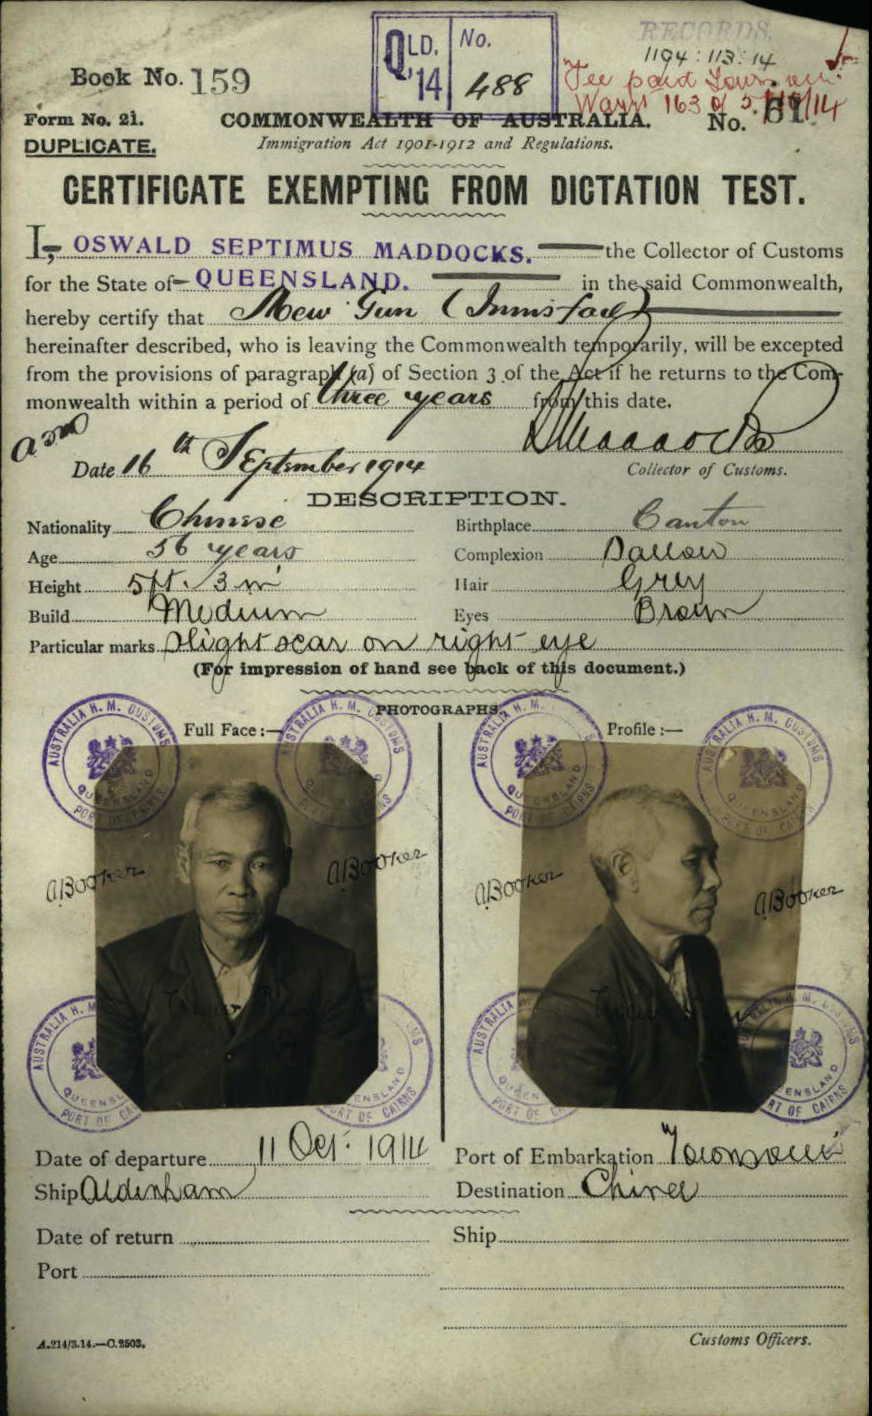 RECORDS.
QLD. No.
'14 488
1194 : 113 : 14
Fee paid
Book No. 159
163 of
Form No. 21. COMMONWEALTH OF AUSTRALIA. No. 61
DUPLICATE. Immigration Act 1901-1912 and Regulations.
CERTIFICATE EXEMPTING FROM DICTATION TEST.
I, OSWALD SEPTIMUS MADDOCKS. the Collector of Customs
for the State of QUEENSLAND. in the said Commonwealth,
hereby certify that Mew Gun (Innisfail)
hereinafter described, who is leaving the Commonwealth temporarily, will be excepted
from the provisions of paragraph (a) of Section 3 of the Act if he returns to the Com-
monwealth within a period of three years from this date.
Maddocks
Date 16th September 1914 Collector of Customs.
DESCRIPTION.
Nationality Chinese Birthplace Canton
Age 56 years Complexion Sallow
Height 5ft. 3 in Hair Grey
Build Medium Eyes Brown
Particular marks Slight scar on right eye
(For impression of hand see back of this document.)
PHOTOGRAPHS.
Full Face :— Profile :—
AUSTRALIA H. M. CUSTOMS QUEENSLAND PORT OF CAIRNS
AUSTRALIA H. M. CUSTOMS
AUSTRALIA H. M. QUEENSLAND PORT OF CAIRNS
AUSTRALIA H. M. CUSTOMS QUEENSLAND PORT OF CAIRNS
A Booker A Booker A Booker A Booker
AUSTRALIA H. M. QUEENSL PORT OF CA
ENSLAND PORT OF CAIRNS
AUSTRALIA PORT OF
ALIA H. M. CUSTOMS ENSLAND RT OF CAIRNS
Date of departure 11 Oct. 1914 Port of Embarkation Townsville
Ship Aldenham Destination China
Date of return Ship
Port
A.214/3.14.—C.2503. Customs Officers.